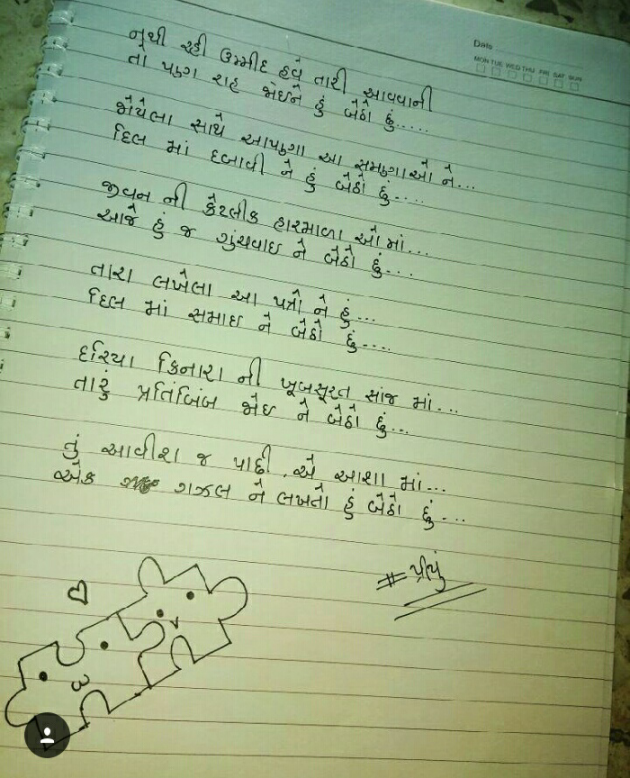 Date
MON TUE WED THU FRI SAT SUN
નથી રહી ઉમ્મીદ હવે તારી આવવાની
તો પણ રાહ જોઇને હું બેઠો છું.....
જોયેલા સાથે આપણા આ સમણાઓ ને...
દિલ માં દબાવી ને હું બેઠો છું....
જીવન ની કેટલીક હારમાળા ઓ માં...
આજે હું જ ગુંચવાઇ ને બેઠો છું...
તારા લખેલા આ પત્રો ને હું...
દિલ માં સમાઇ ને બેઠો છું....
દરિયા કિનારા ની ખૂબસૂરત સાંજ માં...
તારું પ્રતિબિંબ જોઇ ને બેઠો છું...
તું આવીશ જ પાછી એ આશા માં...
એક ગઝલ ને લખતો હું બેઠો છું...
# પ્રીયું